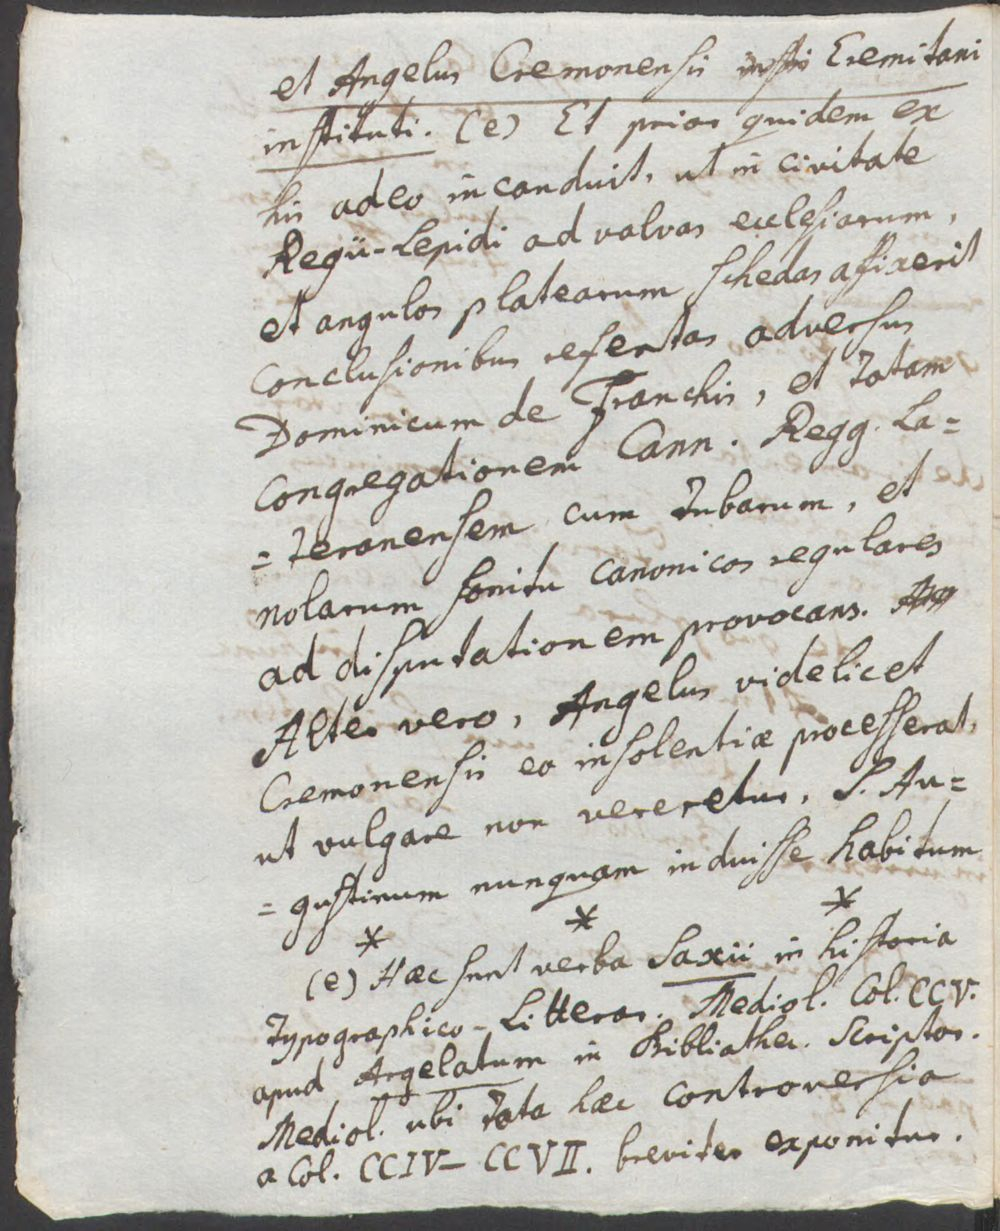 et Angelus Cremonensis Eremitani
instituti. (e) Et prior quidem ex
his adeo incanduit, ut in civitate
Regii-Lepidi ad valvas ecclesiarum,
et angulos platearum schedas affixerit
conclusionibus refertas adversus
Dominicum de Franchis, et totam
congregationem Cann. Regg. La=
=teranensem cum tubarum, et
nolarum sonitu canonicos regulares
ad disputationem provocans.
Alter vero, Angelus videlicet
Cremonensis eo insolentiæ processerat,
ut vulgare non vereretur, S. Au=
=gustinum nunquam induisse habitum
* * *
(e) Hæc sunt verba Saxii in historia
Typographico-Litterar. Mediol. Col. CCV.
apud Argelatum in Bibliothec. Scriptor.
Mediol. ubi tota hæc controversia
a Col. CCIV- CCVII. breviter exponitur.